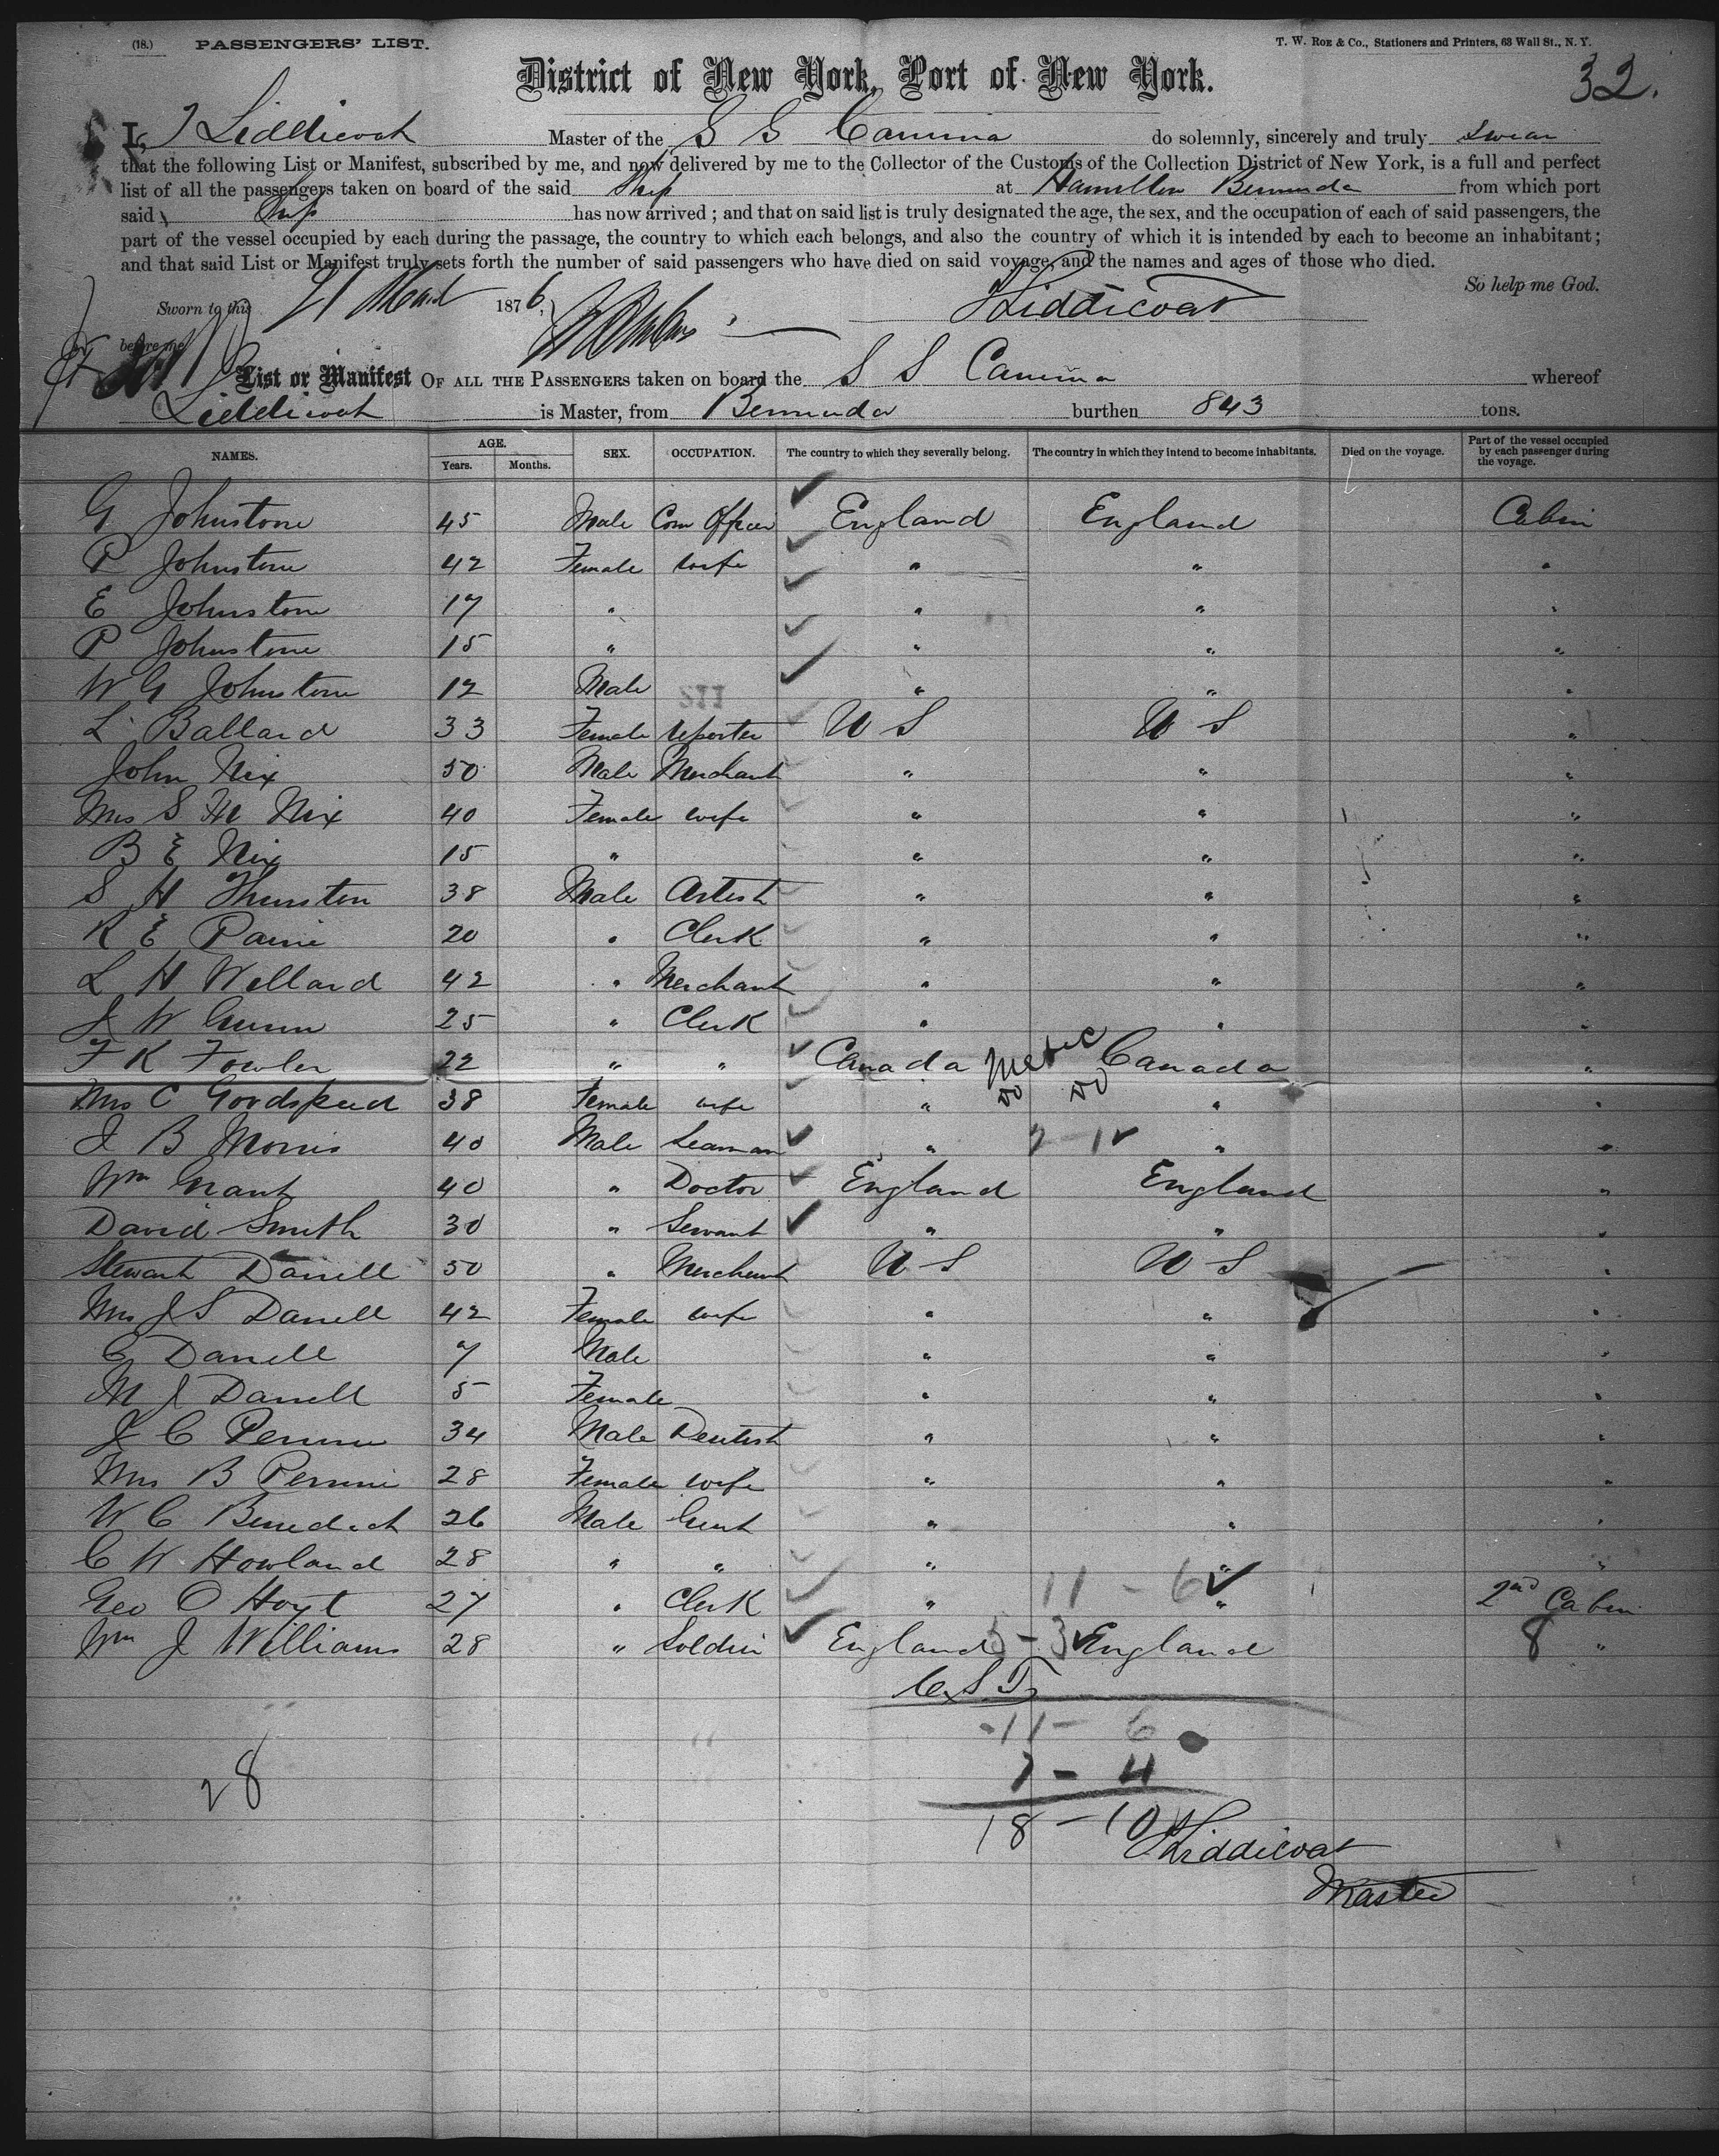 (18.) PASSENGERS' LIST. T. W. ROE & Co., Stationers and Printers, 63 Wall St., N. Y.
District of New York, Port of New York.
32.
I, J Liddicoat Master of the S S Canima do solemnly, sincerely and truly swear
that the following List or Manifest, subscribed by me, and now delivered by me to the Collector of the Customs of the Collection District of New York, is a full and perfect
list of all the passengers taken on board of the said Ship at Hamilton Bermuda from which port
said Ship has now arrived ; and that on said list is truly designated the age, the sex, and the occupation of each of said passengers, the
part of the vessel occupied by each during the passage, the country to which each belongs, and also the country of which it is intended by each to become an inhabitant ;
and that said List or Manifest truly sets forth the number of said passengers who have died on said voyage, and the names and ages of those who died.
So help me God.
Sworn to this 21 March 1876, Liddicoat
before me
List or Manifest OF ALL THE PASSENGERS taken on board the S S Canima whereof
Liddicoat is Master, from Bermuda burthen 843 tons.
NAMES. AGE. Years. Months. SEX. OCCUPATION. The country to which they severally belong. The country in which they intend to become inhabitants. Died on the voyage. Part of the vessel occupied by each passenger during the voyage.
G Johnstone 45 Male Com Officer England England Cabin
P Johnstone 42 Female wife " " "
E Johnstone 17 " " " "
P Johnstone 15 " " " "
W G Johnstone 12 Male " " "
L Ballard 33 Female reporter U S U S "
John Nix 50 Male Merchant " " "
Mrs S Nix 40 Female wife " " "
B E Nix 15 " " " "
S H Thurston 38 Male Artist " " "
R E Paine 20 " Clerk " " "
L H Willard 42 " Merchant " " "
J W Gunn 25 " Clerk " " "
F K Fowler 22 " " Canada Canada "
Mrs C Goodspeed 38 Female wife " " "
J B Morris 40 Male Seaman " 2 - 1 " "
Wm Grant 40 " Doctor England England "
David Smith 30 " Servant " " "
Stewart Darrell 50 " Merchant U S U S "
Mrs J S Darrell 42 Female wife " " "
C Darrell 7 Male " " "
M J Darrell 5 Female " " "
J C Perrine 34 Male Dentist " " "
Mrs B Perrine 28 Female wife " " "
W C Benedict 26 Male Gent " " "
C W Howland 28 " " " " "
Geo O Hoyt 27 " Clerk " 11 - 6 " 2nd Cabin
Wm J Williams 28 " Soldier England 5 - 3 England 8 "
11 - 6
7 - 4
28
18 - 10
Liddicoat
Master